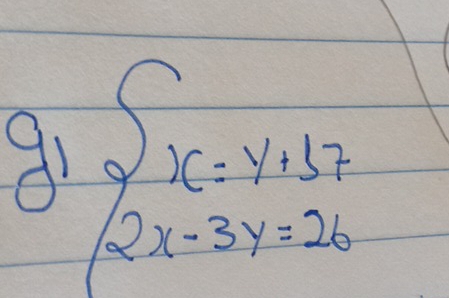 g) { x = y + 57
2x - 3y = 26